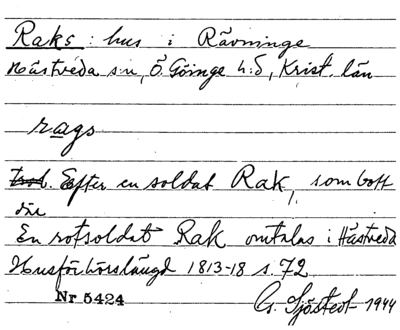 Raks : hus i Rävninge
Hästveda sn, Ö. Göinge h:d, Krist. län
rags
trol. Efter en soldat Rak, som bott
där
En rotsoldat Rak omtalas i Hästveda
Husförhörslängd 1813-18 s. 72
Nr 5424
G. Sjöstedt 1944